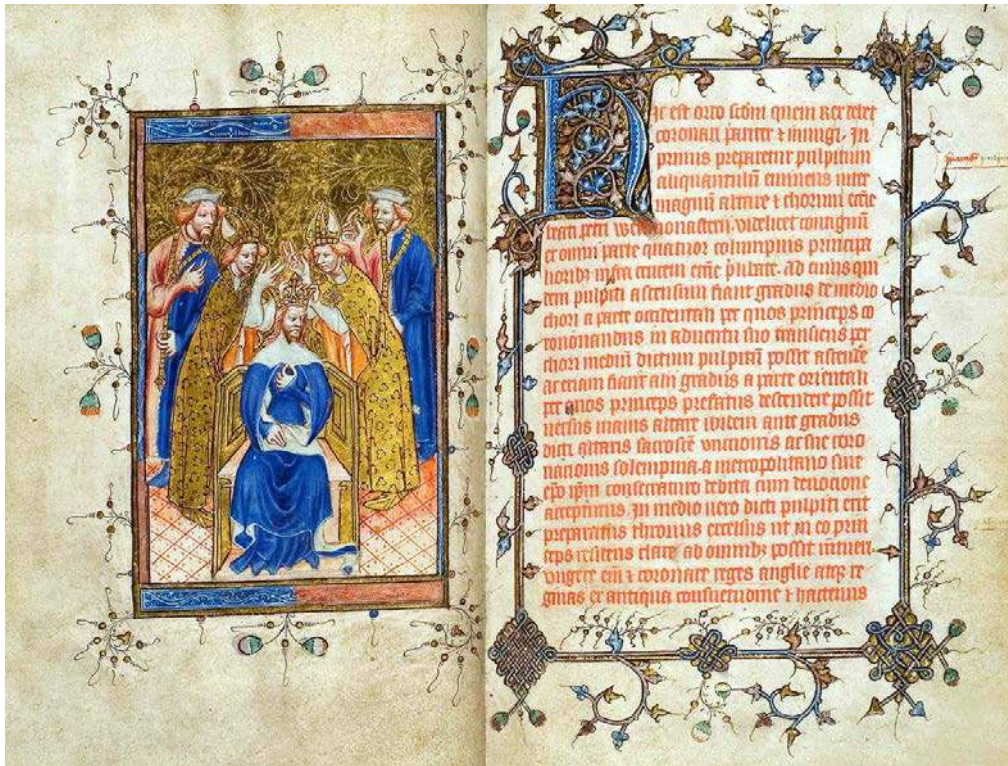 Hic est ordo scdm quem Rex debet
coronari pariter & inungi. In
primis preparetur pulpitum
aliquantulū eminens inter
magnū altare & chorum eccie
beati petri westmonasterij. videlicet contiguū
ex omni parte quatuor columpnis principa
liorib; infra crucem eccie p̄libate. ad cuius qui
dem pulpiti ascensum fiant gradus de medio
chori a parte occidentali per quos princeps co
ronandus in aduentu suo transiens per
chori mediū dictum pulpitū possit ascende
ac etiam fiant alii gradus a parte orientali
per quos princeps prefatus descendere possit
versus maius altare ibidem ante gradus
dicti altaris sacrosce unctionis ac sue coro
nationis solempnia. a metropolitano siue
epo ipm consecraturo debita cum deuocione
accepturus. In medio uero dicti pulpiti erit
preparatus thronus excelsus ut in eo prin
ceps residens clare ab omnib; possit intueri
ungere eni & coronare reges anglie atq; re
ginas ex antiqua consuetudine & hactenus